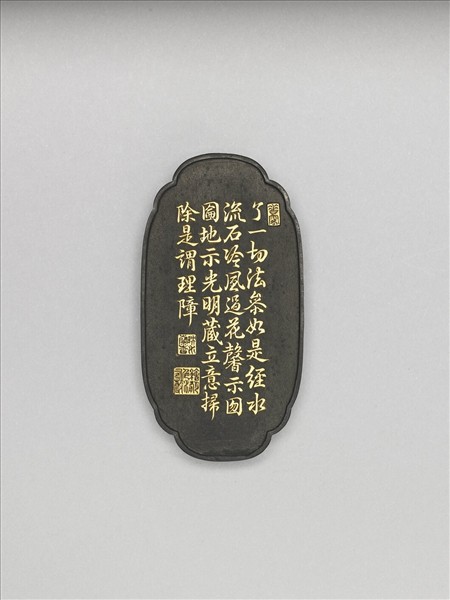 了一切法叅如是經水
流石冷風過花馨示囫
圇地示光明藏立意掃
除是謂理障